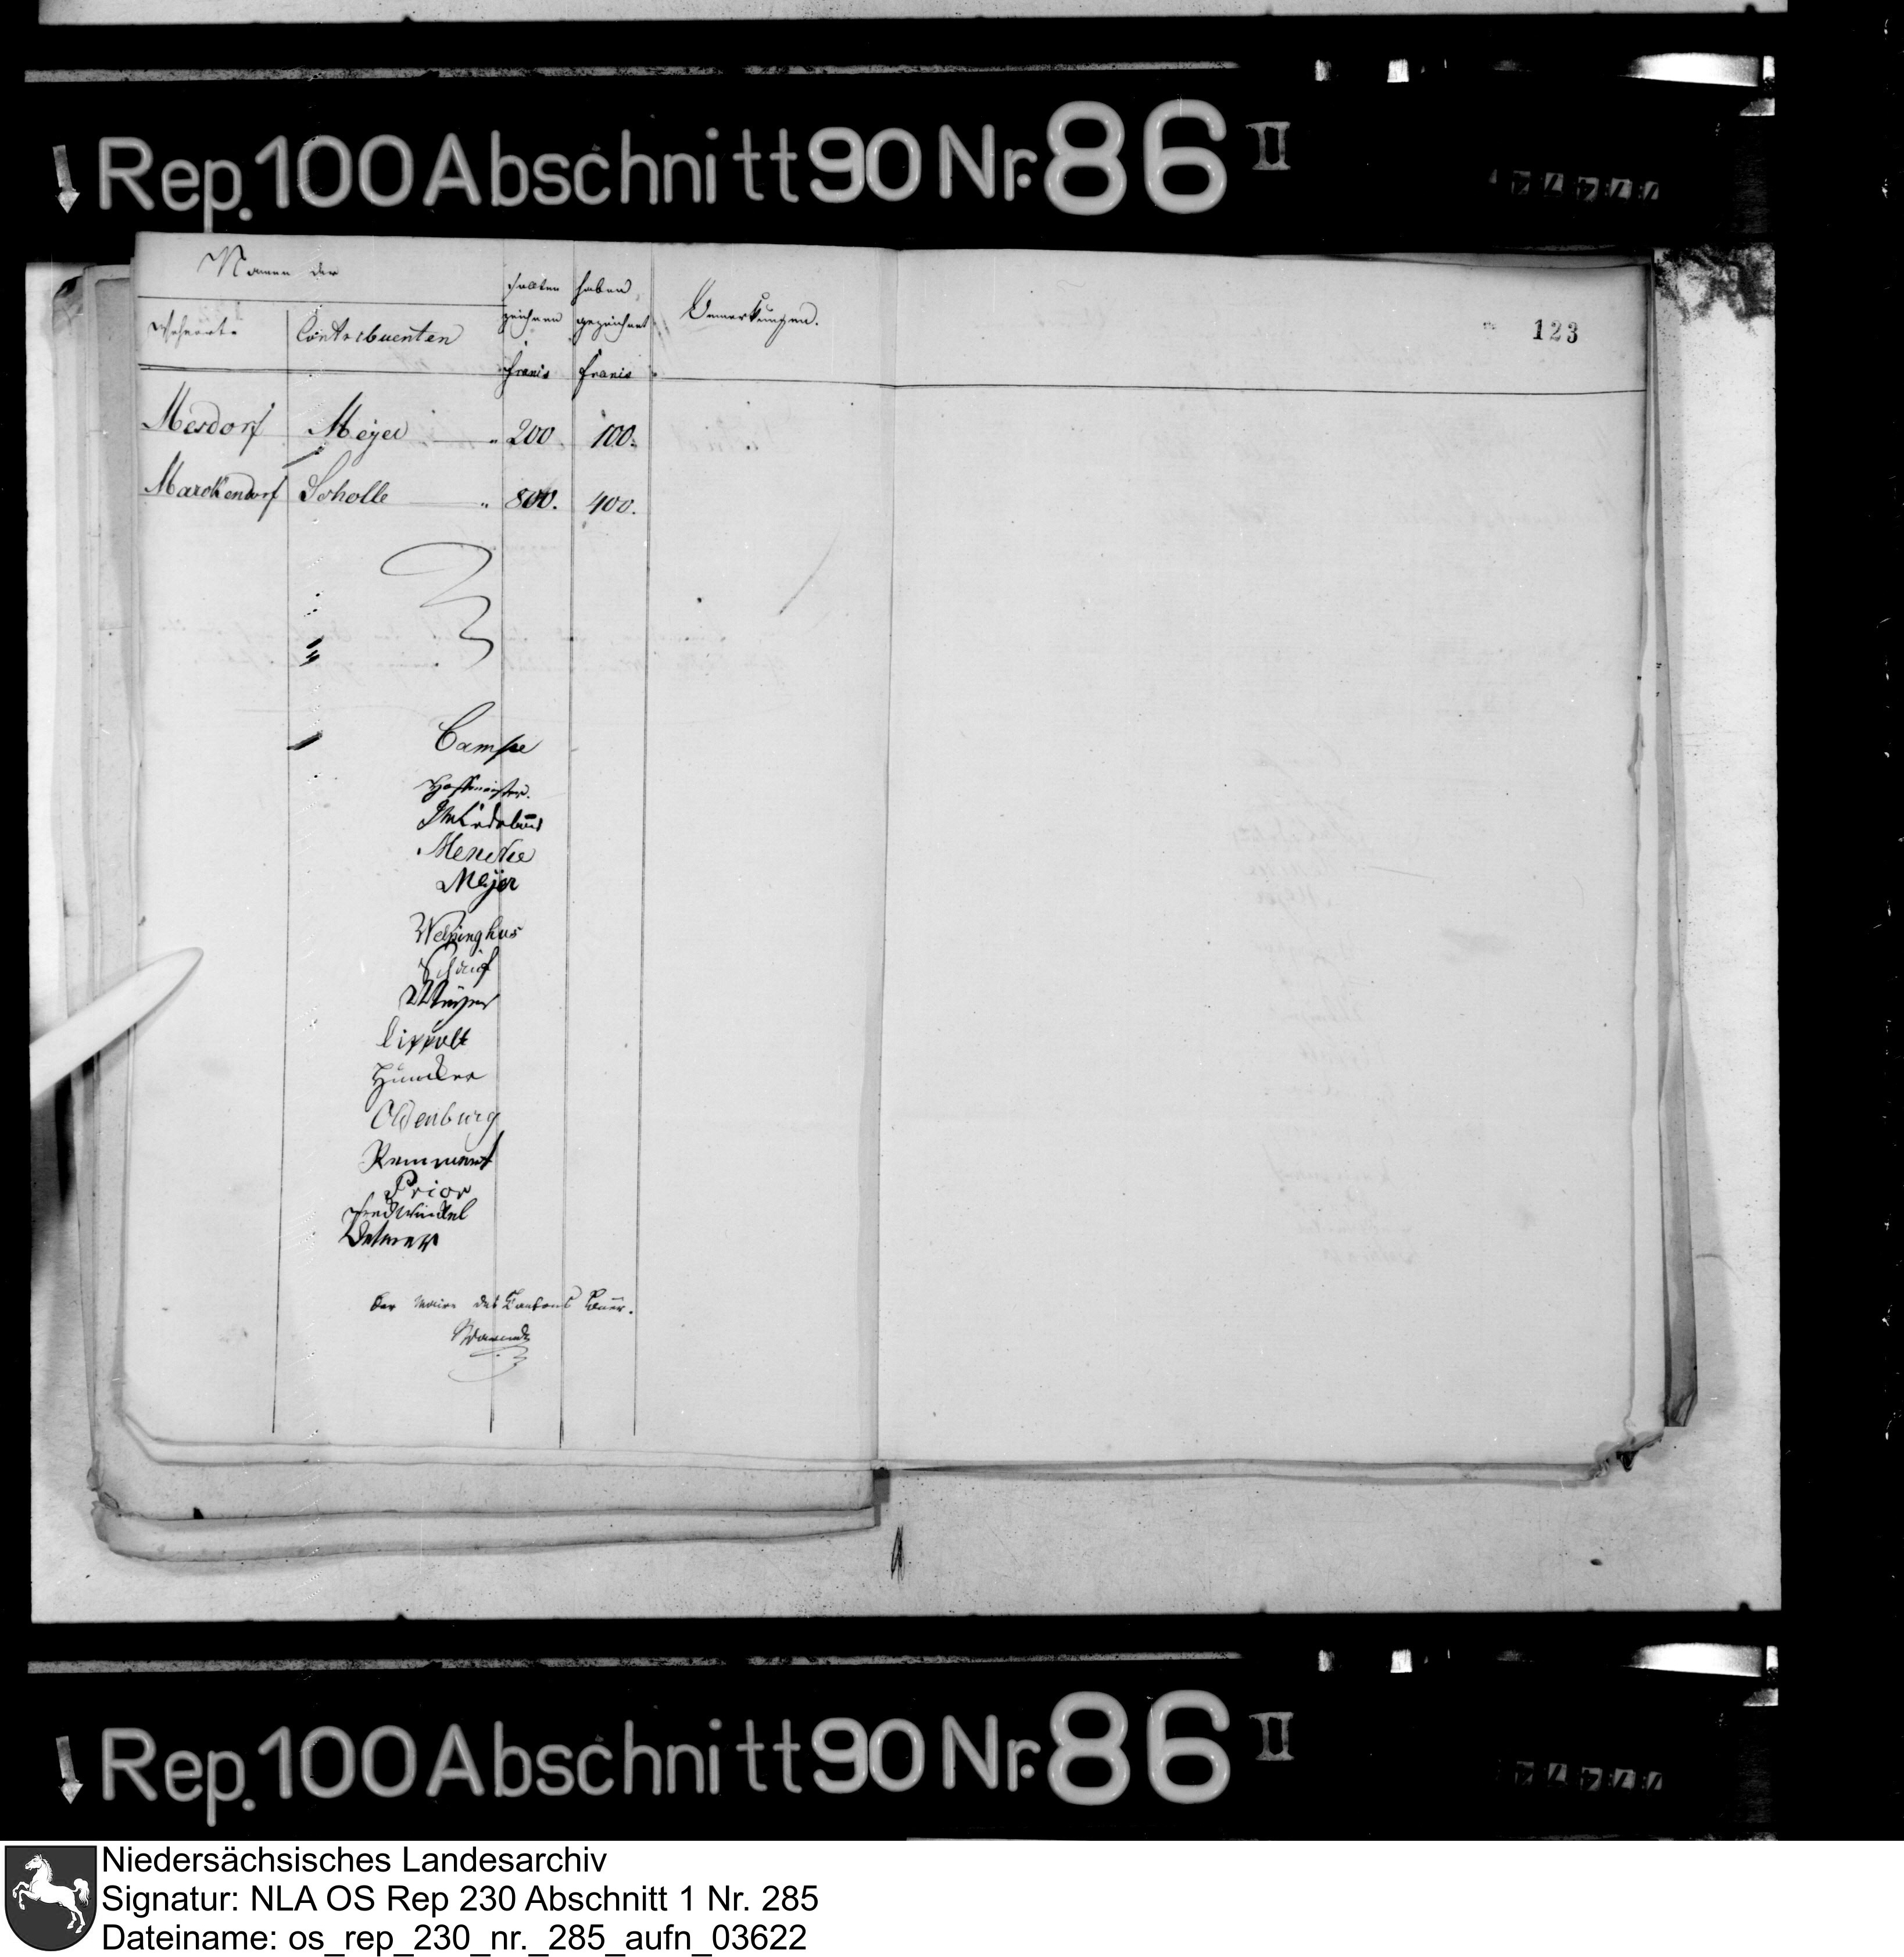 Rep. 100 Abschnitt 90 Nr. 86 II
Namen der
Wohnorte
Contribuenten
sollten zeichnen
Francs
haben gezeichnet
Francs
Bemerkungen.
123
Mesdorf Meyer " 200. 100.
Marckendorf Scholle " 800. 400.
Campe
Hoffmeister.
Mencke
Meyer
Wessinghus
Meyer
Lippolt
Huncker
Oldenburg
Remmert
Prior
Detmer
Der Maire des Cantons Buer.
Rep. 100 Abschnitt 90 Nr. 86 II
Niedersächsisches Landesarchiv
Signatur: NLA OS Rep 230 Abschnitt 1 Nr. 285
Dateiname: os_rep_230_nr._285_aufn_03622